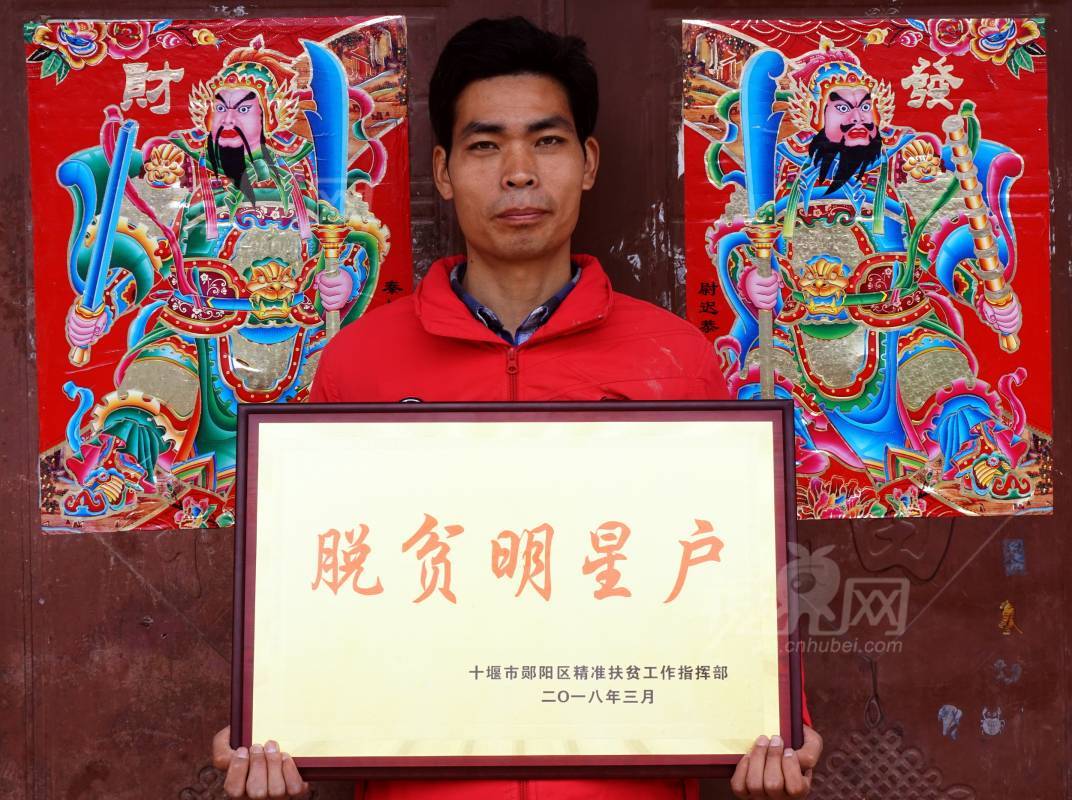 財
發
秦
尉迟恭
脱贫明星户
十堰市郧阳区精准扶贫工作指挥部
二〇一八年三月
网
.cnhubei.com